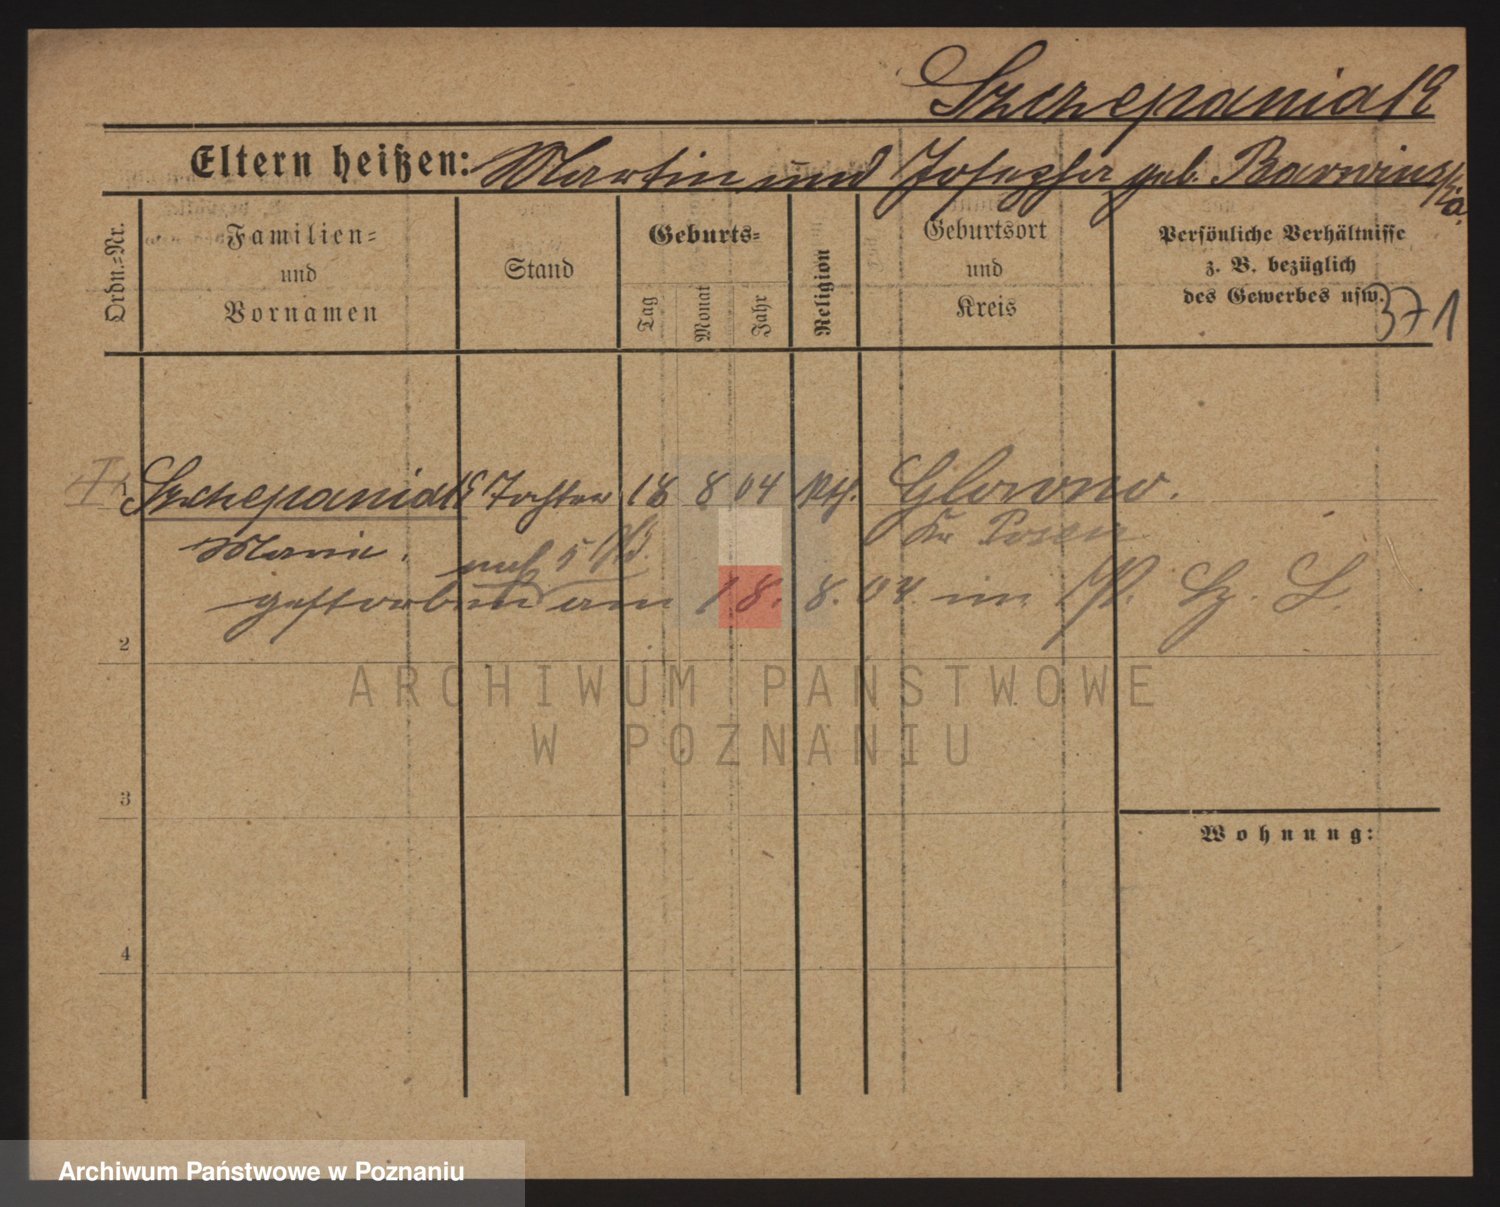 Szczepaniak
Eltern heißen: Martin und Josepha geb. Barwinska
Ordn.-Nr.
Familien- und Vornamen
Stand
Geburts-
Tag
Monat
Jahr
Religion
Geburtsort und Kreis
Persönliche Verhältnisse
z. B. bezüglich
des Gewerbes usw.
371
1 Szczepaniak Tochter 18 8 04 kth. Glowno.
Marie. Kr Posen
gestorben am 18. 8. 04 im
2
ARCHIWUM PAŃSTWOWE
W POZNANIU
3
Wohnung:
4
Archiwum Państwowe w Poznaniu